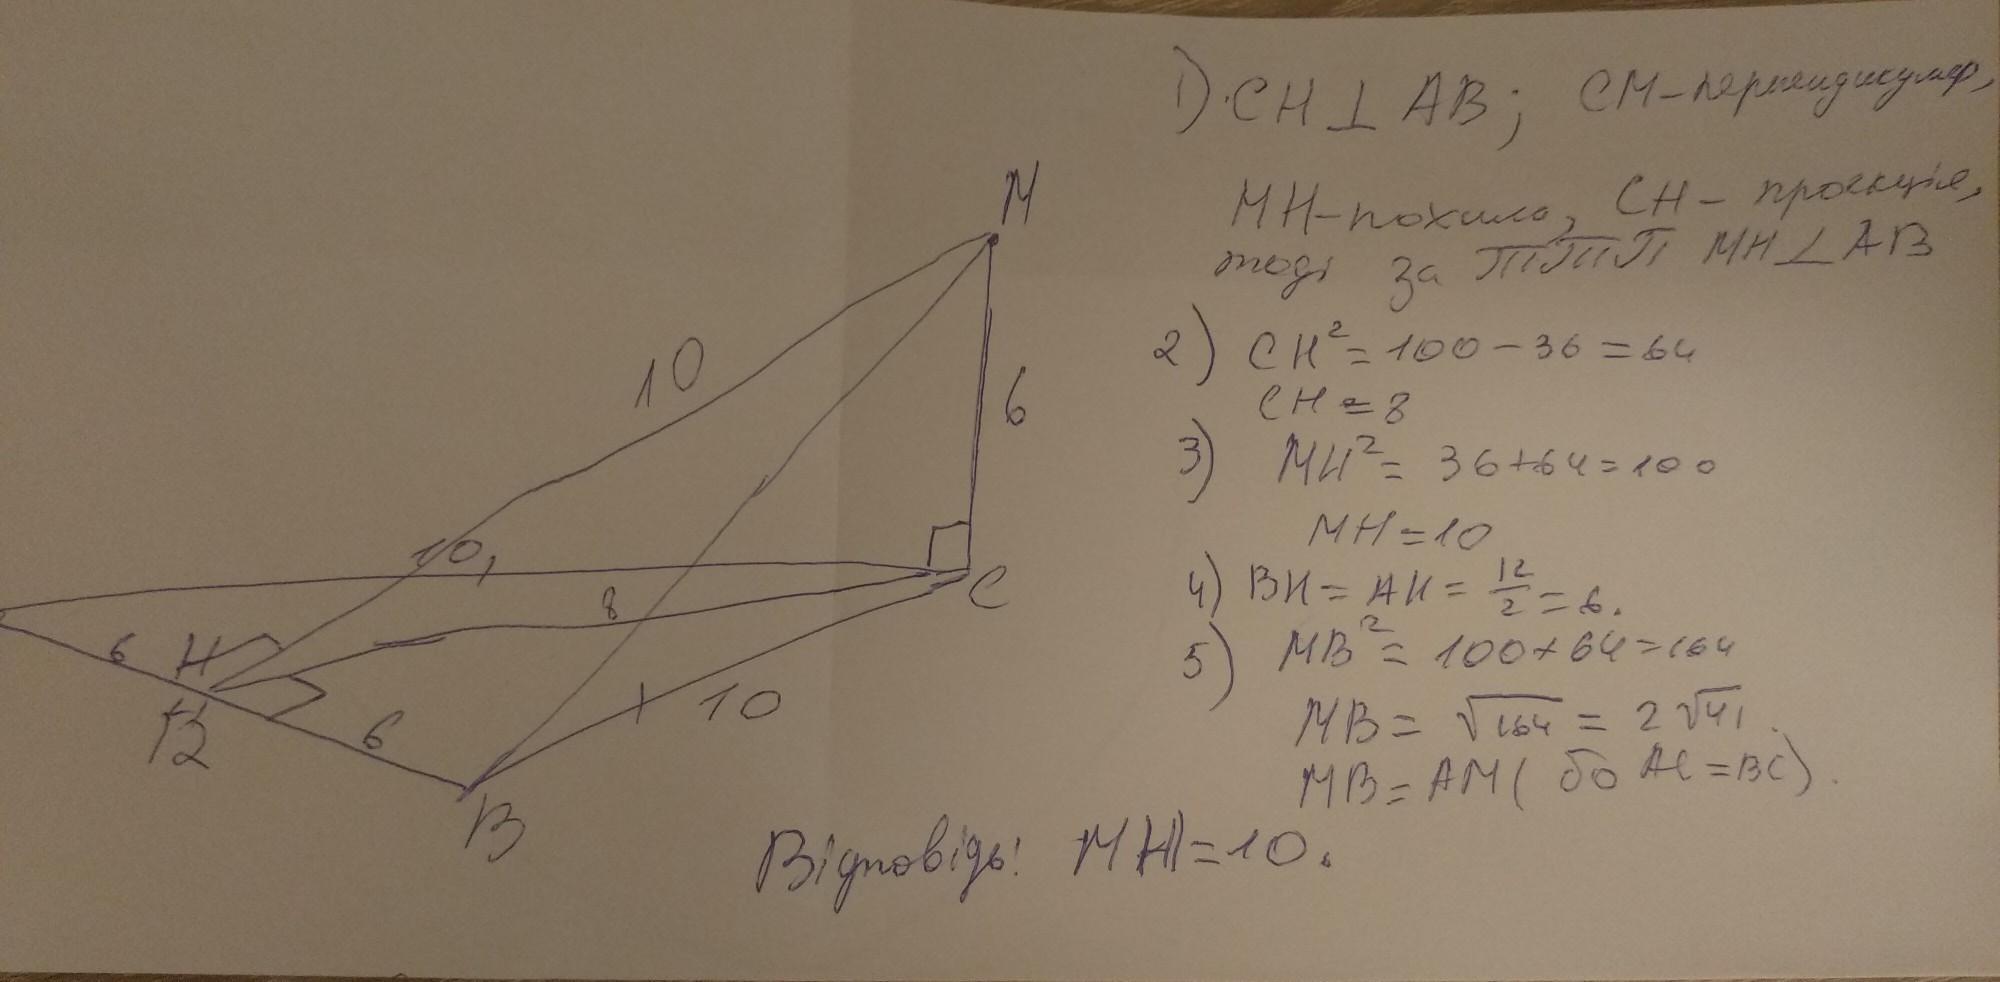 1) CH ⊥ AB; CM - перпендикуляр,
MH - похила, CH - проекція,
тоді за ТТП MH ⊥ AB
2) CH² = 100 - 36 = 64
CH = 8
3) MH² = 36 + 64 = 100
MH = 10
4) BH = AH = 12/2 = 6.
5) MB² = 100 + 64 = 164
MB = √164 = 2√41.
MB = AM (бо AC = BC).
Відповідь: MH = 10.
M
10
6
10
8
C
6
H
12
6
10
B